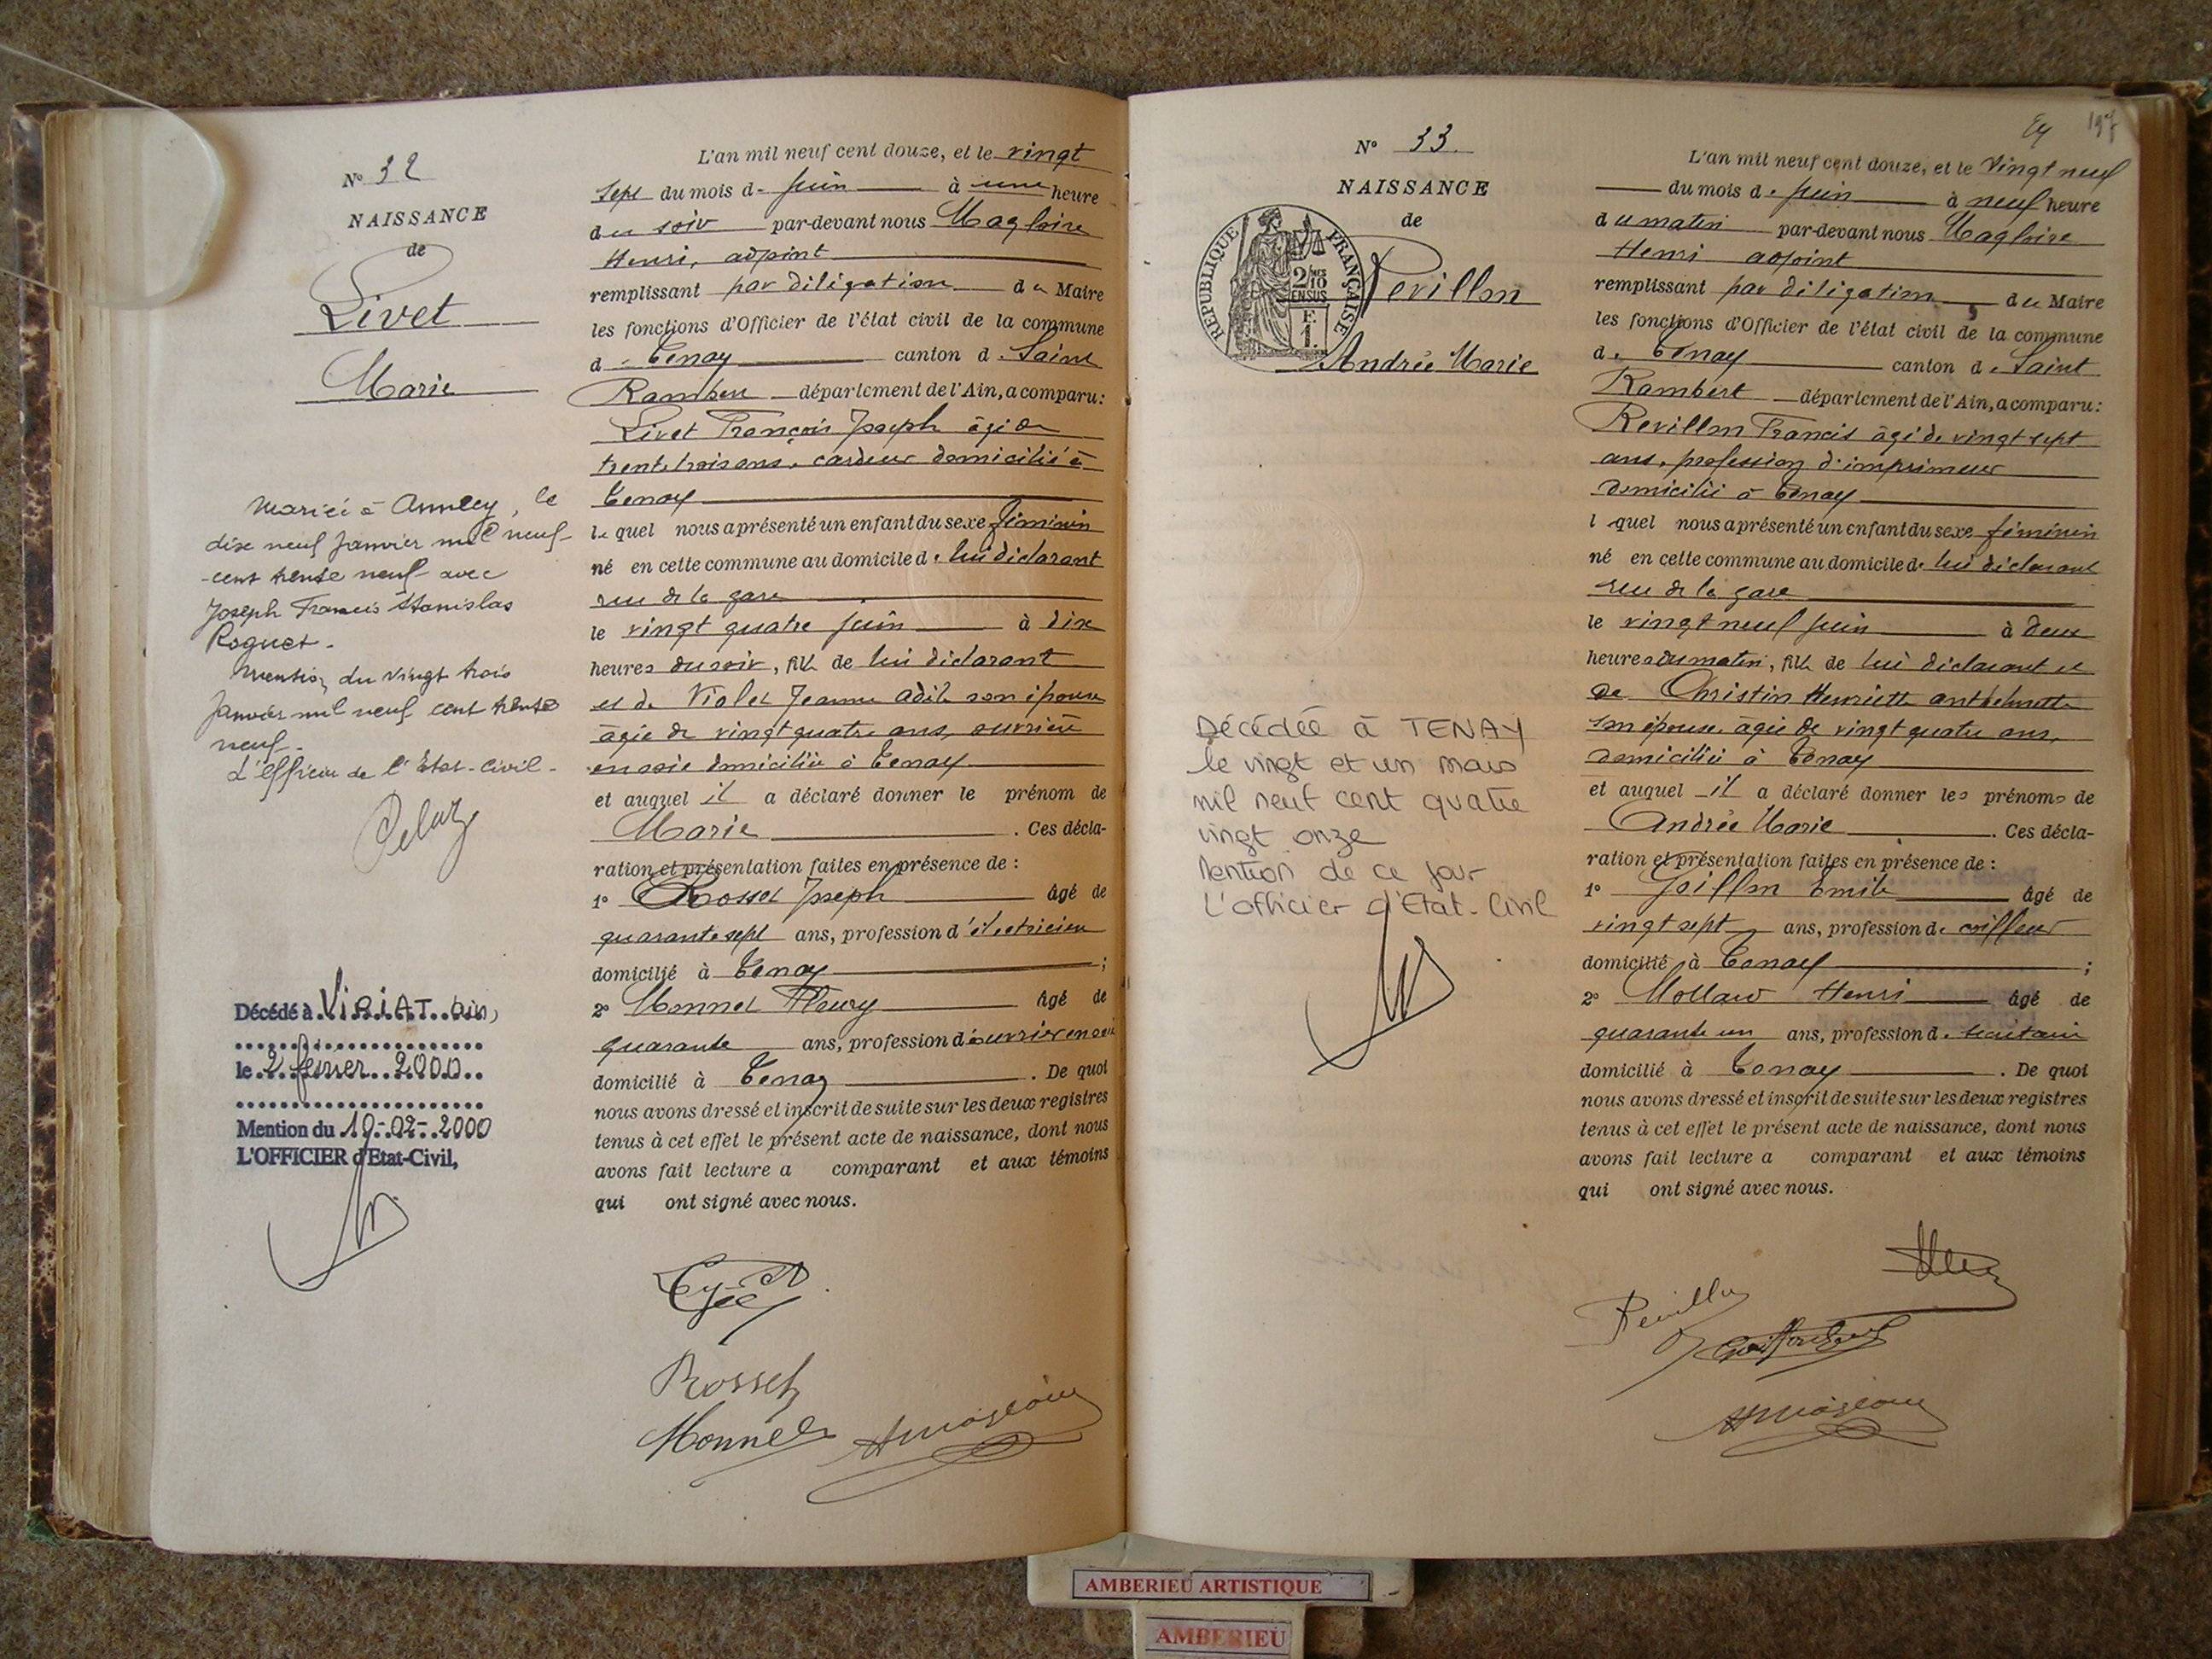 N° 32
NAISSANCE
de
Livet
Marie
Mariée à Annecy, le
dix neuf Janvier mil neuf-
-cent trente neuf avec
Joseph Francis Stanislas
Roguet.
Mention du vingt trois
Janvier mil neuf cent trente
neuf.
L'officier de l'Etat-Civil-
Décédé à VIRIAT. Ain,
le 2 février 2000
Mention du 10-02-2000
L'OFFICIER d'Etat-Civil,
L'an mil neuf cent douze, et le vingt
sept du mois de Juin à une heure
du soir par-devant nous Magloire
Henri, adjoint
remplissant par délégation du Maire
les fonctions d'Officier de l'état civil de la commune
de Tenay canton de Saint
Rambert département de l'Ain, a comparu:
Livet François Joseph âgé de
trente trois ans, cardeur domicilié à
Tenay
lequel nous a présenté un enfant du sexe féminin
né en cette commune au domicile de lui déclarant
rue de la gare
le vingt quatre Juin à dix
heures du soir, fille de lui déclarant
et de Violet Jeanne Adèle son épouse
âgée de vingt quatre ans, ouvrière
en soie domiciliée à Tenay
et auquel il a déclaré donner le prénom de
Marie. Ces décla-
ration et présentation faites en présence de :
1° Rosset Joseph âgé de
quarante sept ans, profession d'électricien
domicilié à Tenay ;
2° Monnet Fleury âgé de
quarante ans, profession d'ouvrier en soie
domicilié à Tenay. De quoi
nous avons dressé et inscrit de suite sur les deux registres
tenus à cet effet le présent acte de naissance, dont nous
avons fait lecture a comparant et aux témoins
qui ont signé avec nous.
Rosset
Monnet
197
N° 33
NAISSANCE
de
RÉPUBLIQUE FRANÇAISE
2/10 EN SUS
F.
1.
Revillon
Andrée Marie
Décédée à TENAY
le vingt et un mars
mil neuf cent quatre
vingt onze
Mention de ce jour
L'officier d'Etat-Civil
L'an mil neuf cent douze, et le vingt neuf
du mois de Juin à neuf heure
du matin par-devant nous Magloire
Henri adjoint
remplissant par délégation du Maire
les fonctions d'Officier de l'état civil de la commune
de Tenay canton de Saint
Rambert département de l'Ain, a comparu:
Revillon Francis âgé de vingt sept
ans, profession d'imprimeur
domicilié à Tenay
l quel nous a présenté un enfant du sexe féminin
né en cette commune au domicile de lui déclarant
rue de la gare
le vingt neuf Juin à deux
heures du matin, fille de lui déclarant et
de Christin Henriette Anthelmette
son épouse, âgée de vingt quatre ans,
domiciliée à Tenay
et auquel il a déclaré donner les prénoms de
Andrée Marie. Ces décla-
ration et présentation faites en présence de :
1° Emile âgé de
vingt sept ans, profession de coiffeur
domicilié à Tenay ;
2° Henri âgé de
quarante un ans, profession de secrétaire
domicilié à Tenay. De quoi
nous avons dressé et inscrit de suite sur les deux registres
tenus à cet effet le présent acte de naissance, dont nous
avons fait lecture a comparant et aux témoins
qui ont signé avec nous.
Revillon
AMBERIEU ARTISTIQUE
AMBERIEU